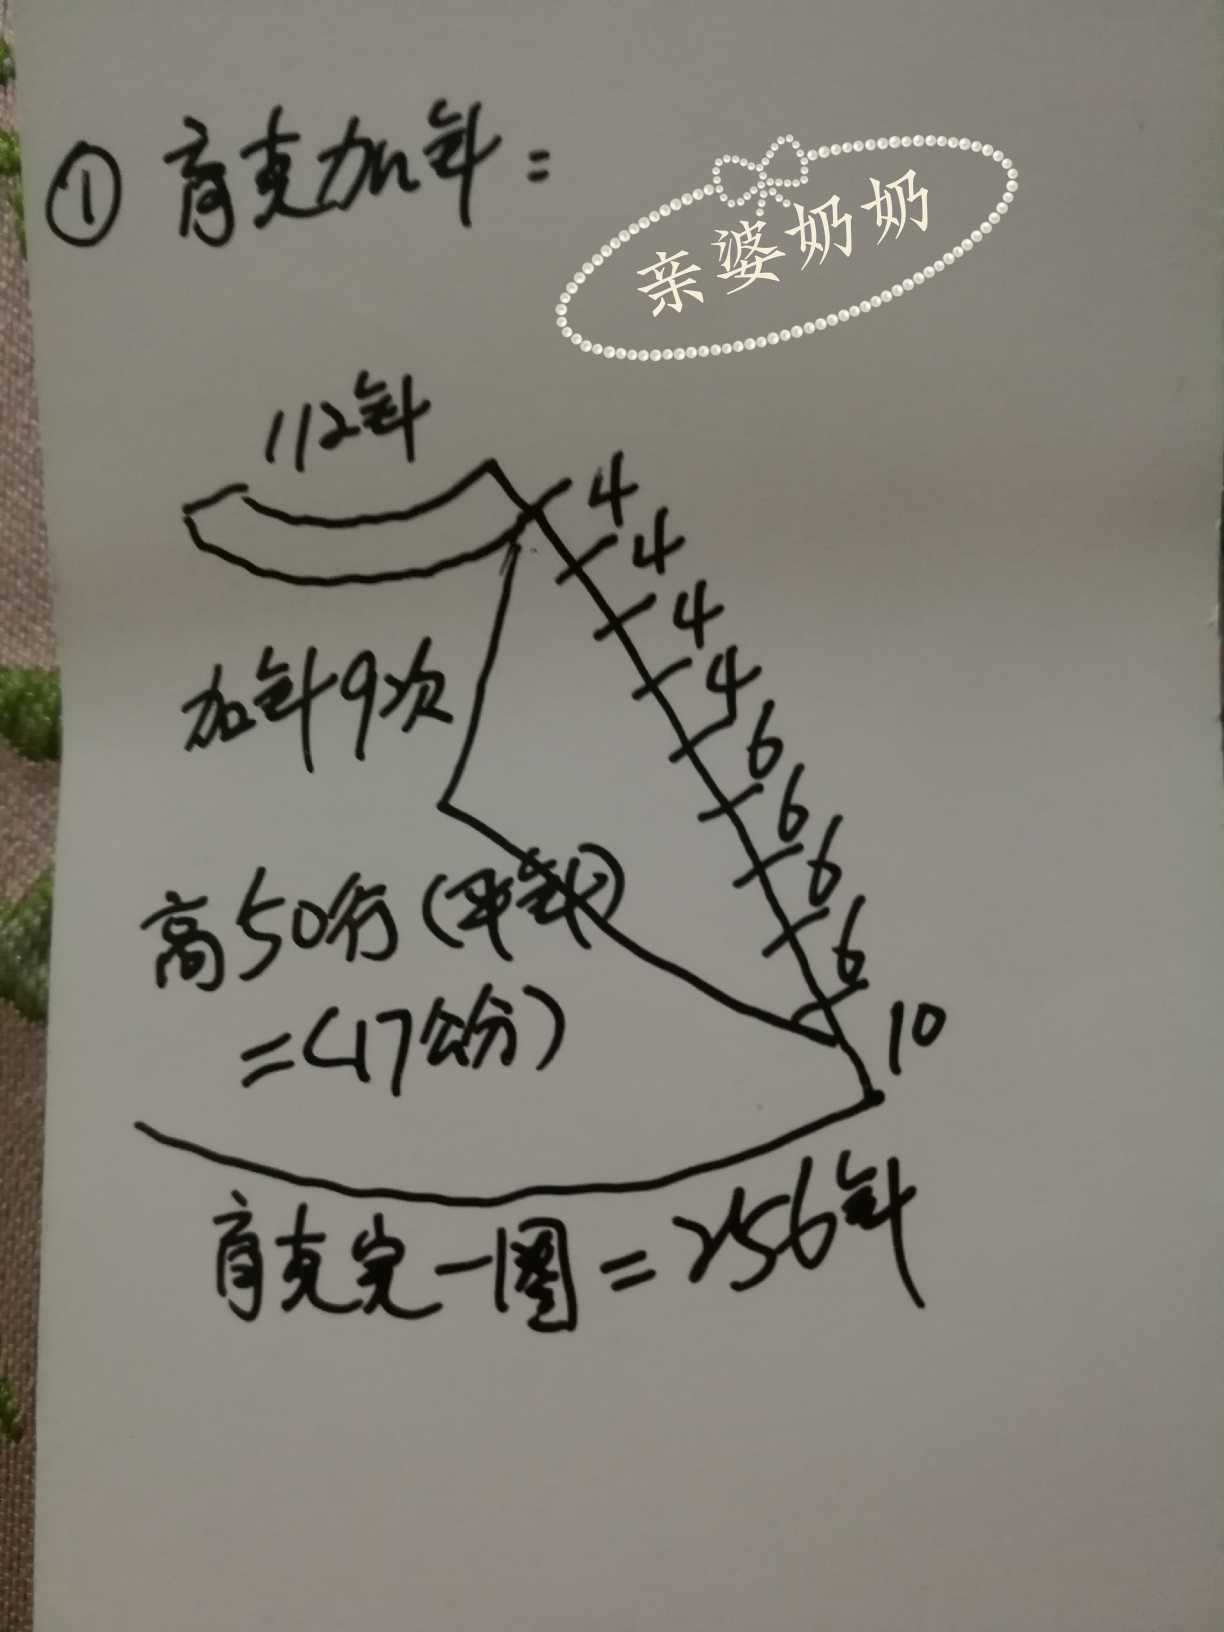 ① 育克加针:
亲婆奶奶
112针
4
4
4
4
加针9次
6
6
6
6
高50行(平针)
=(17公分)
10
育克完一圈=256针